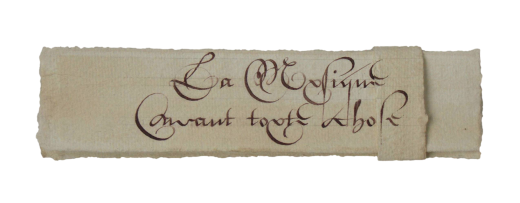 La Mvsiqve
avant tovte chose